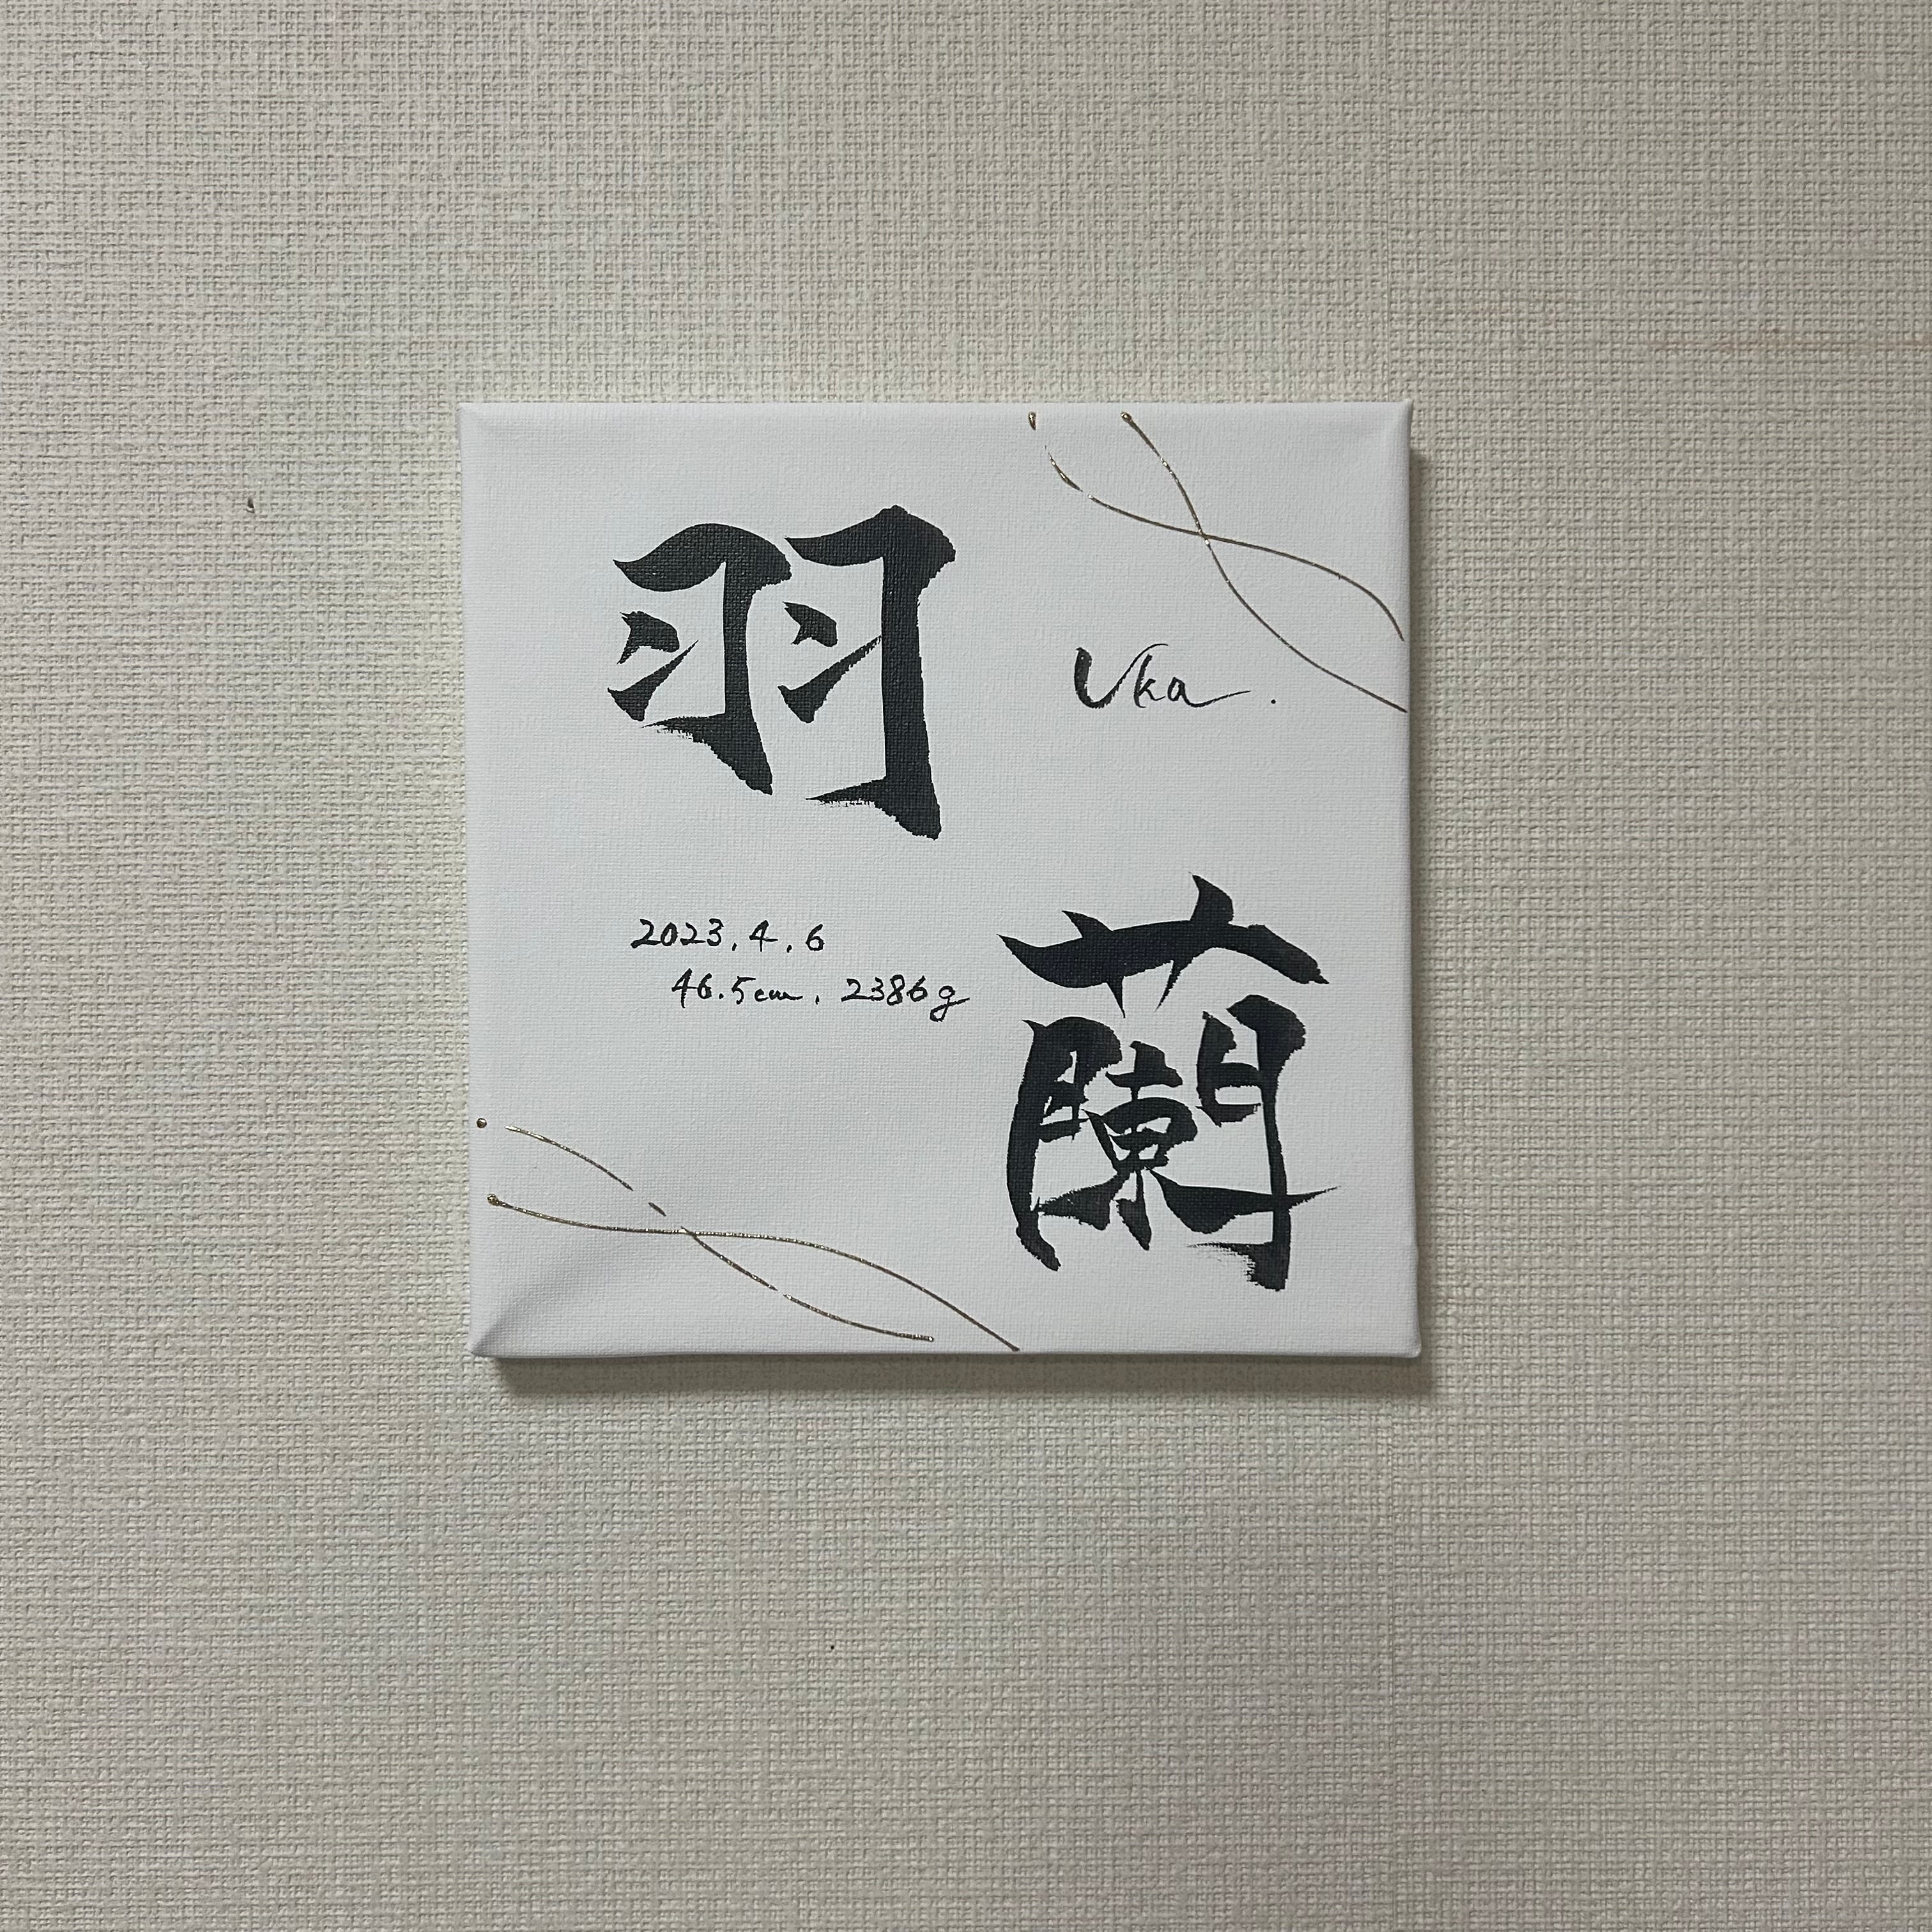 羽
Uka.
蘭
2023.4.6
46.5cm. 2386g